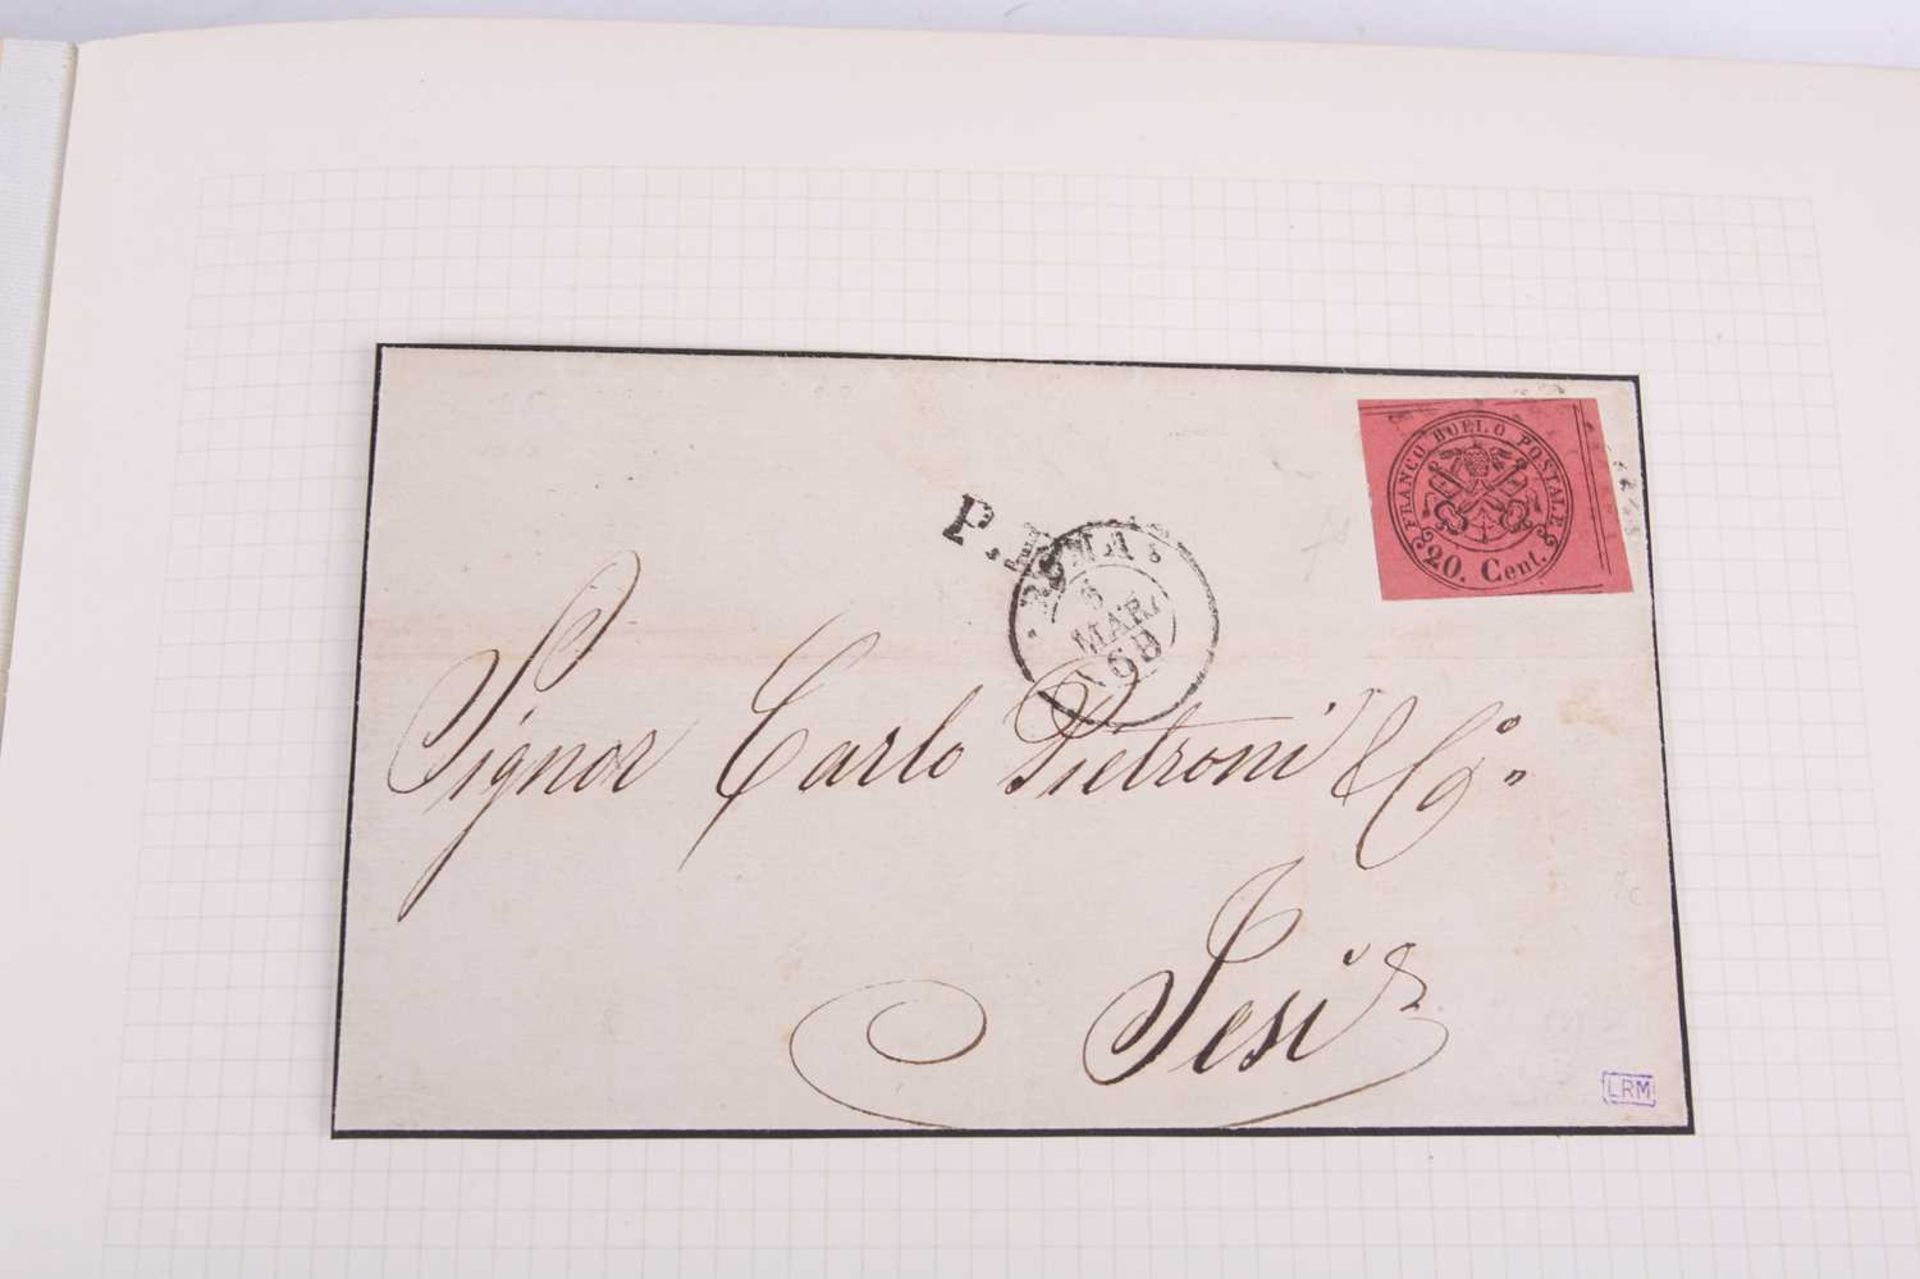 FRANCO BOLLO POSTALE
20. Cent.
P.
ROMA
MAR.
68
Signor Carlo Pietroni & Co.
Jesi
LRM